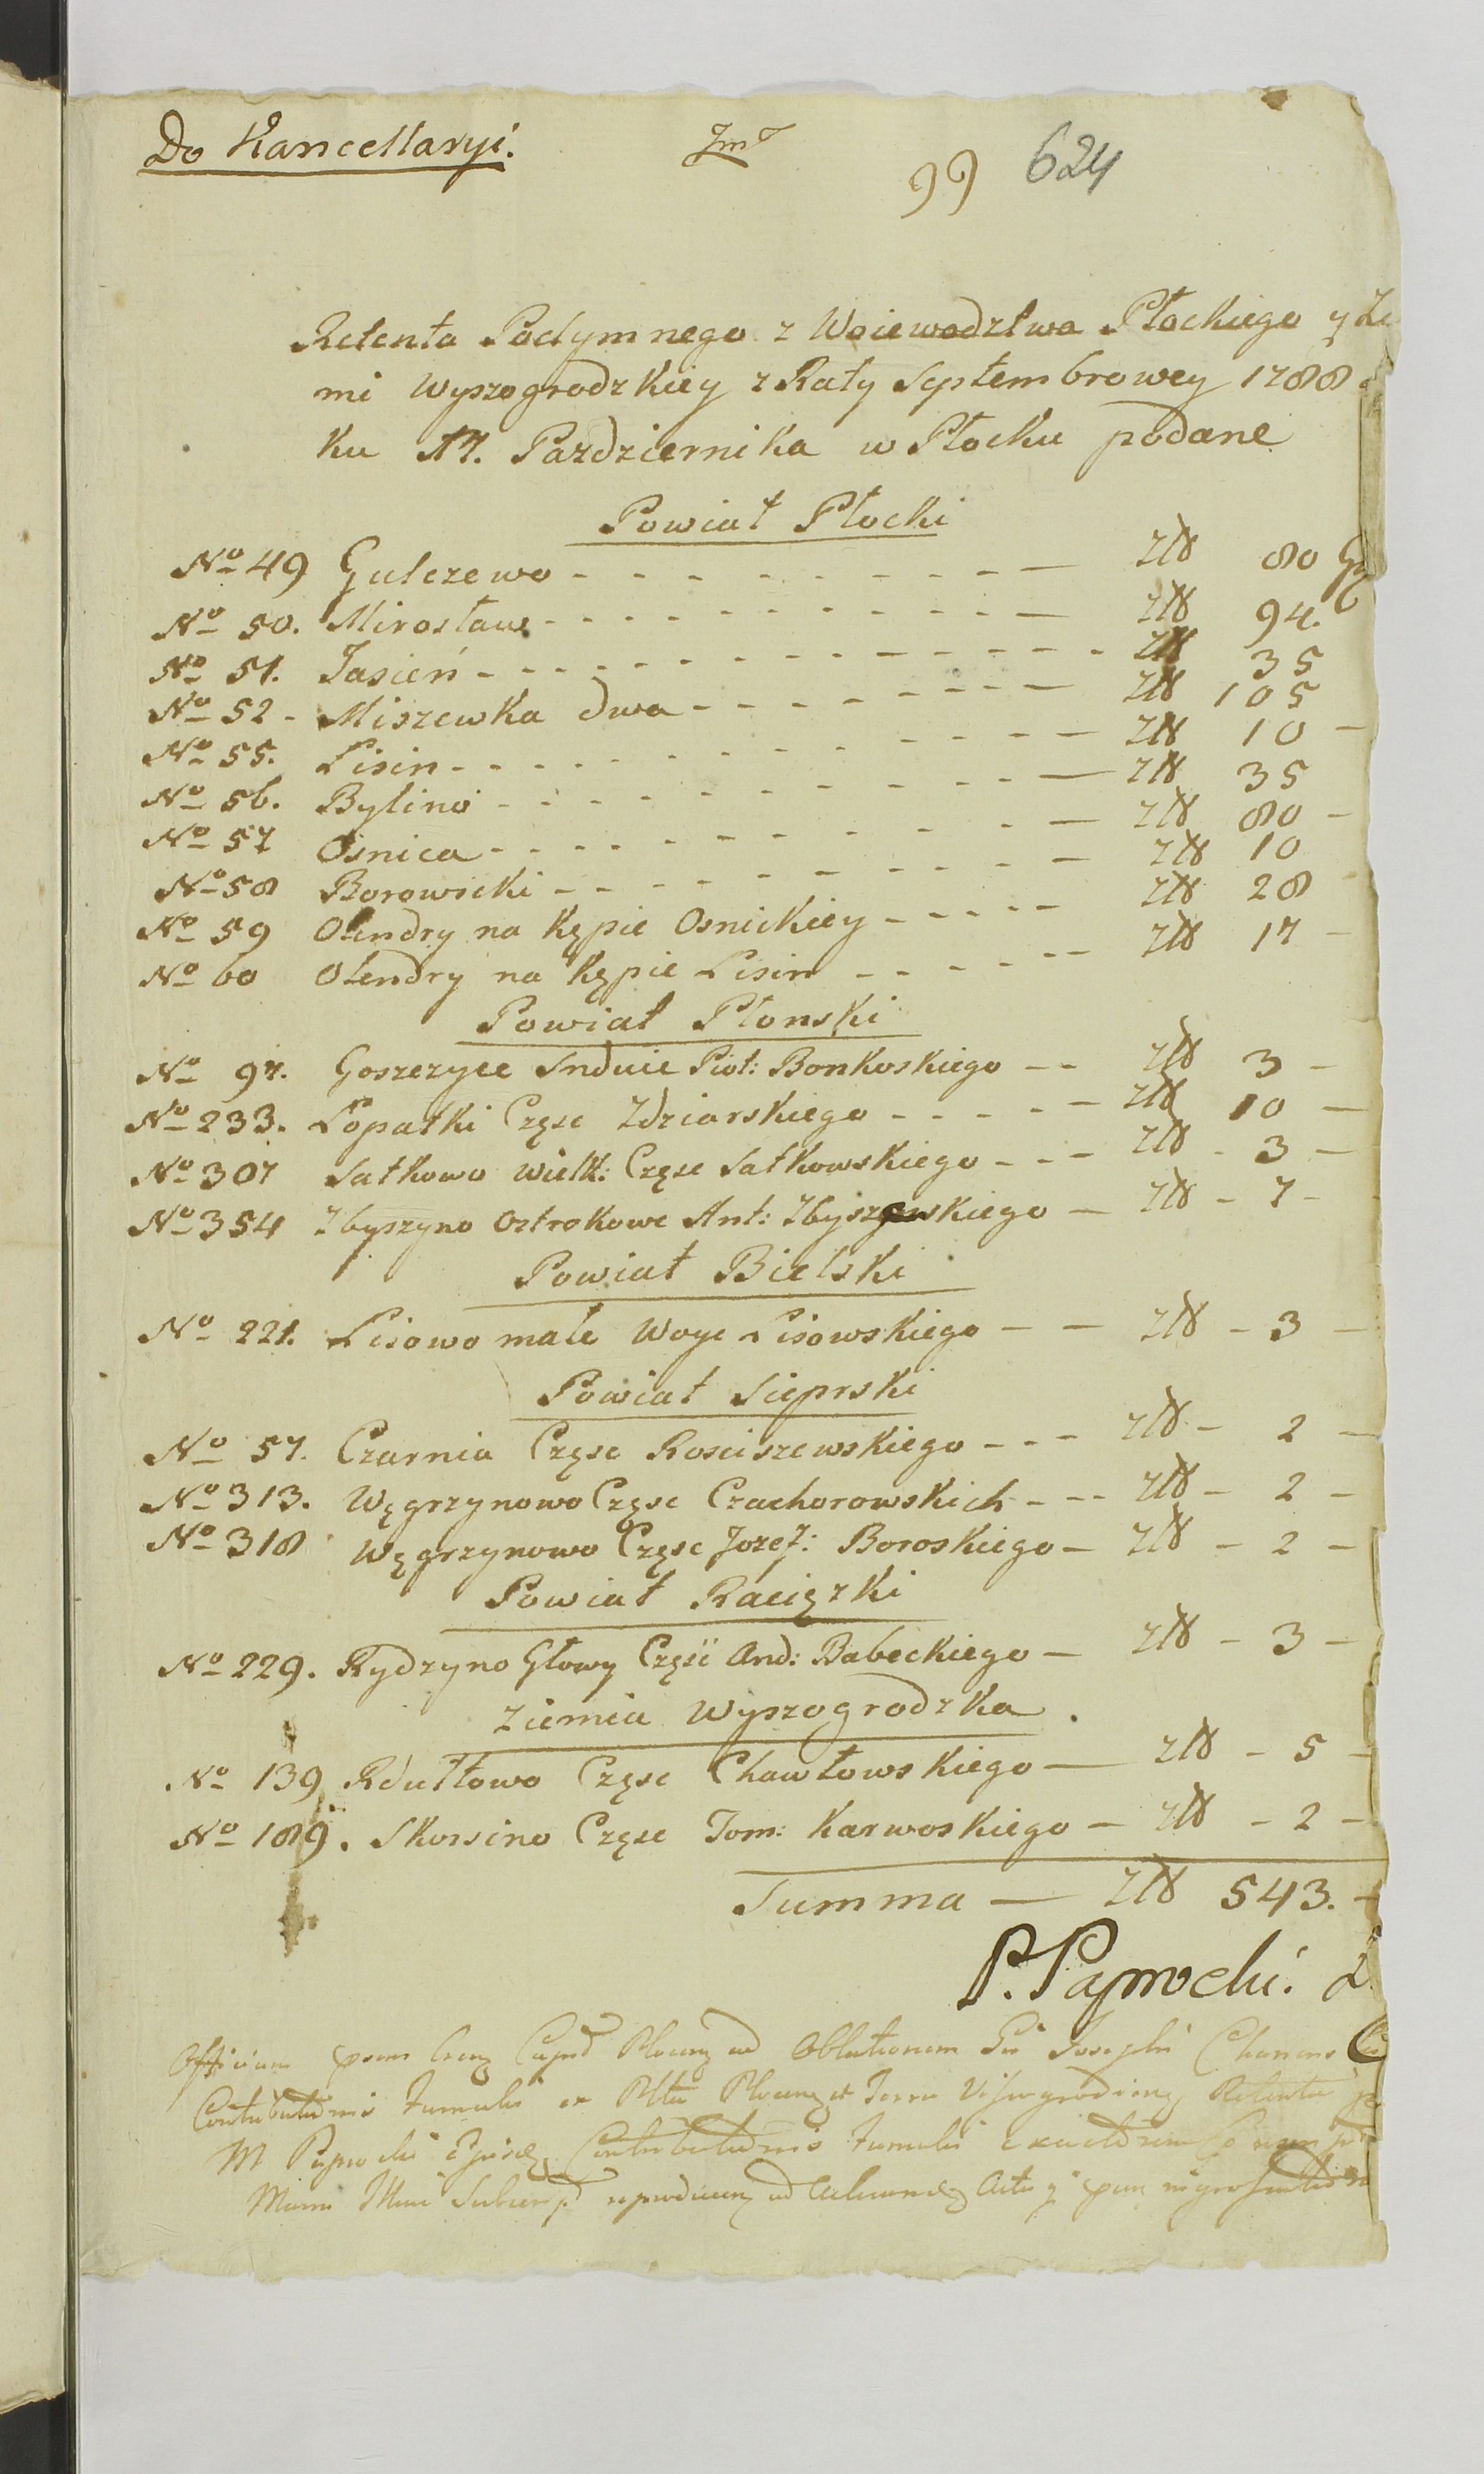 Do Kancellaryi.
99 624
Retenta Podymnego z Woiewodztwa Płockiego y Ze
mi Wyszogrodzkiey z Raty Septembrowey 1788
ku 17. Pazdziernika w Płocku podane
Powiat Płocki
No 49 Gulczewo - - - - - - - - - - - Złł 80 Gr
No 50. Mirosław - - - - - - - - - - - Złł 94.
No 51. Jasień - - - - - - - - - - - - - Złł 35
No 52 - Miszewka dwa - - - - - - - - Złł 105
No 55. Lisin - - - - - - - - - - - Złł 10 -
No 56. Bylino - - - - - - - - - - Złł 35
No 57 Osnica - - - - - - - - - - Złł 80 -
No 58 Borowicki - - - - - - - - - Złł 10
No 59 Olendry na Kępie Osnickiey - - - - - Złł 28
No 60 Olendry na Kępie Lisin - - - - - Złł 17 -
Powiat Płonski
No 97. Goszczyce Srednie Piot: Bonkoskiego - - Złł 3 -
No 233. Łopatki Częsc Zdziarskiego - - - - - Złł 10 -
No 307 Satkowo Wielk: Częsc Satkowskiego - - - Złł - 3 -
No 354 Zbyszyno Ostrokowe Ant: Zbyszewskiego - Złł - 7 -
Powiat Bielski
No 221. Lisowo małe Woyc Lisowskiego - - Złł - 3 -
Powiat Sieprski
No 57. Czarnia Częsc Rosciszewskiego - - - Złł - 2 -
No 313. Węgrzynowo Częsc Czachorowskich - - - Złł - 2 -
No 318 Węgrzynowo Częsc Jozef: Boroskiego - Złł - 2 -
Powiat Raciązki
No 229. Rydzyno Głowy Częsć And: Babeckiego - Złł - 3 -
Ziemia Wyszogrodzka.
No 139 Rdułtowo Częsc Chawłowskiego - Złł - 5 -
No 189. Skorsino Częsc Tom: Karwoskiego - Złł - 2 -
Summa - Złł 543. -
P. Paprocki.
Officium Oblationem Josephi
ex Terra Retenta
M Paprocki